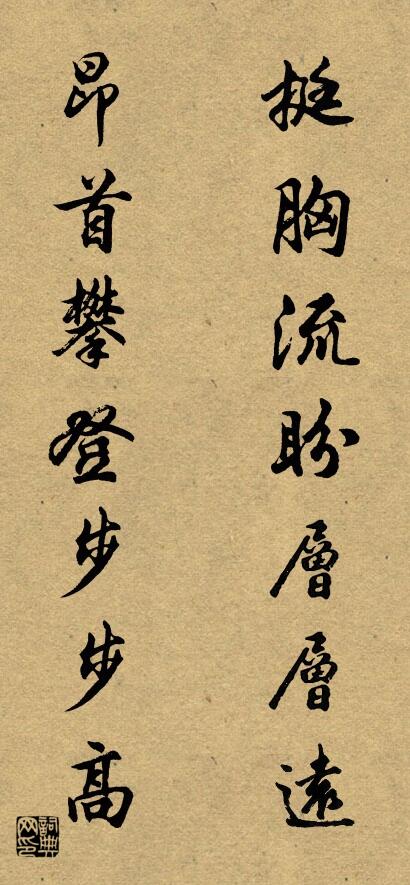 挺胸流盼層層遠
昂首攀登步步高
詞典網印